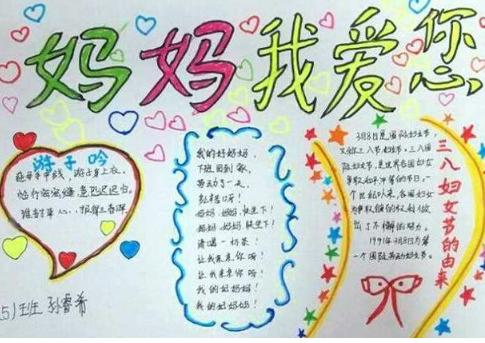 妈妈我爱您
游子吟
慈母手中线,游子身上衣。
临行密密缝,意恐迟迟归。
谁言寸草心,报得三春晖。
5)班 孙睿希
我的好妈妈,
下班回到家,
劳动了一天,
妈妈,妈妈,快坐下!
妈妈,妈妈,快坐下!
请喝一杯茶!
让我亲亲你吧!
让我亲亲你吧!
我的好妈妈!
我的好妈妈!
三八妇女节的由来
3月8日是国际妇女节,
妇女节,是世界各国妇女
的节日。
出了不懈的努力。